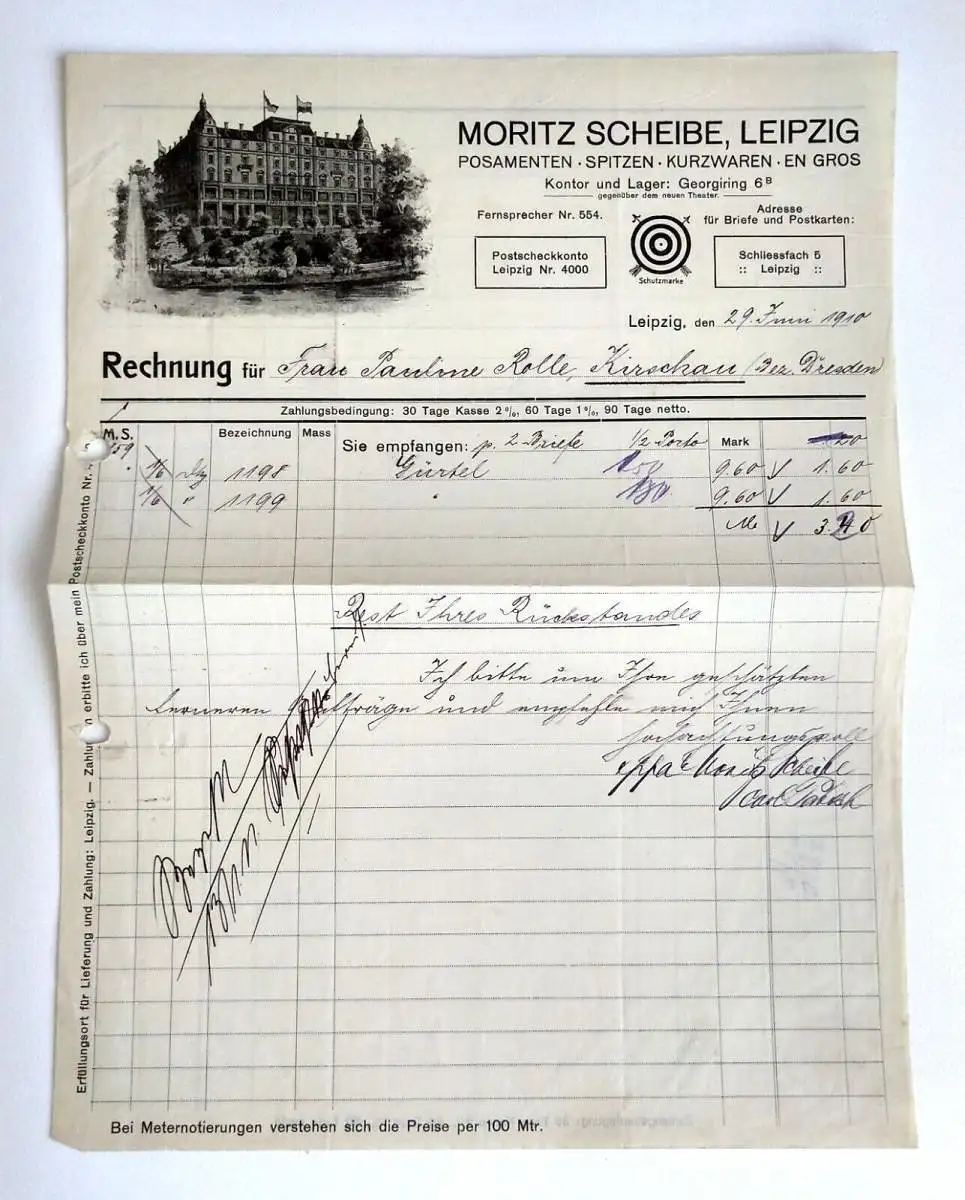 MORITZ SCHEIBE, LEIPZIG
POSAMENTEN · SPITZEN · KURZWAREN · EN GROS
Kontor und Lager: Georgiring 6 B
gegenüber dem neuen Theater.
Fernsprecher Nr. 554.
Adresse
für Briefe und Postkarten:
Postscheckkonto
Leipzig Nr. 4000
Schutzmarke
Schliessfach 5
:: Leipzig ::
Leipzig, den 29. Juni 1910
Rechnung für Frau Pauline Rolle, Kirschau (Bez. Dresden)
Zahlungsbedingung: 30 Tage Kasse 2%, 60 Tage 1%, 90 Tage netto.
M. S. Bezeichnung Mass Sie empfangen: p. 2 Briefe 1/2 Porto Mark 20
1/6 Dtz 1198 Gürtel 9.60 1.60
1/6 " 1199 9.60 1.60
M 3.40
Rest Ihres Rückstandes
Ich bitte um Ihre geschätzten
ferneren Aufträge und empfehle mich Ihnen
hochachtungsvoll
ppa Moritz Scheibe
Carl
Erfüllungsort für Lieferung und Zahlung: Leipzig. — Zahlungen erbitte ich über mein Postscheckkonto Nr.
Bei Meternotierungen verstehen sich die Preise per 100 Mtr.